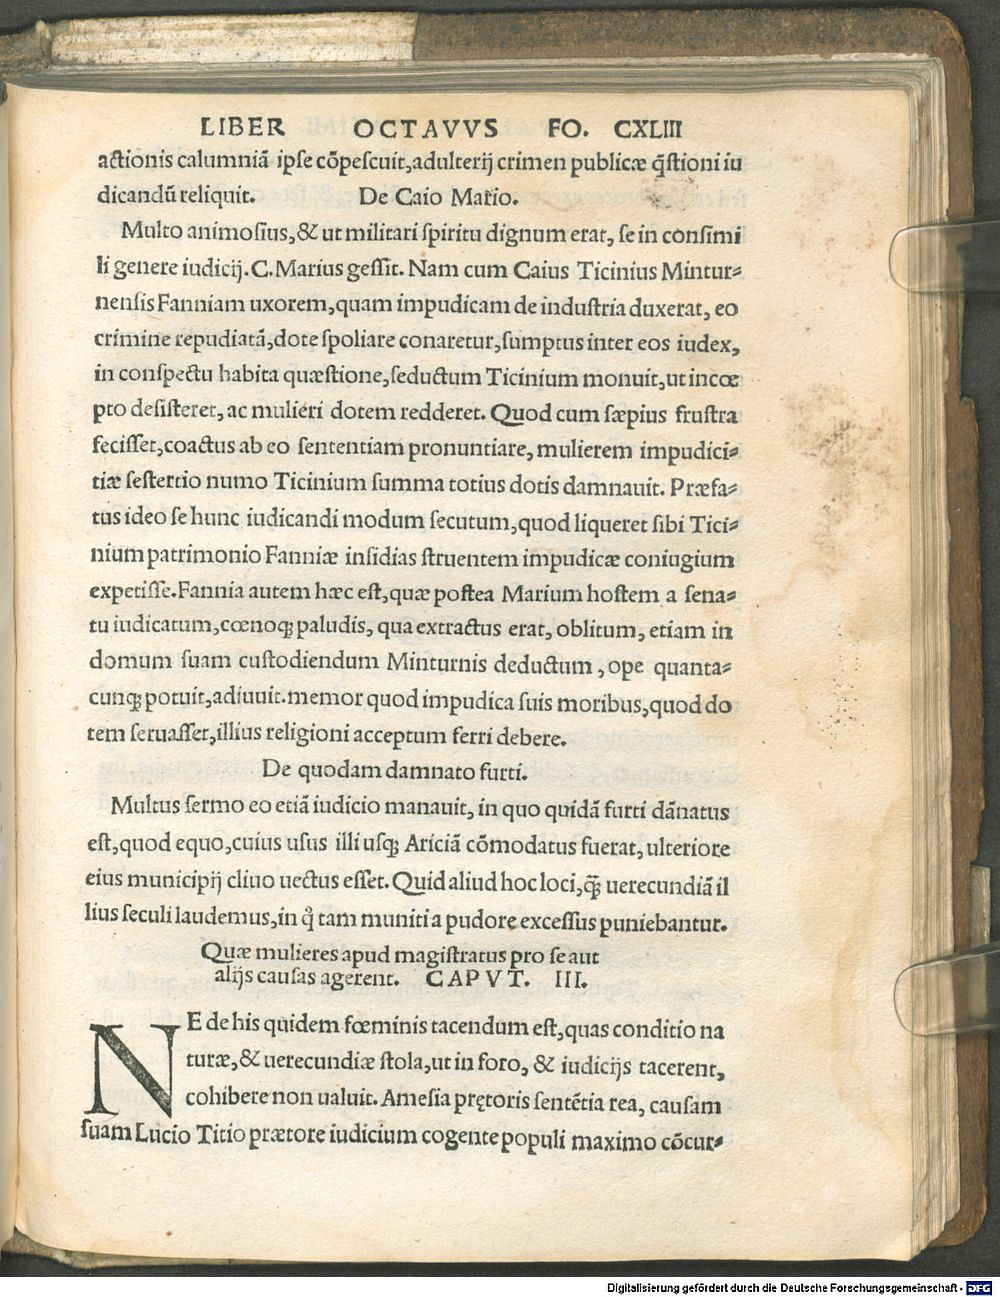 LIBER OCTAVVS FO. CXLIII
actionis calumniã ipſe cõpeſcuit,adulterij crimen publicæ q̃ſtioni iu
dicandũ reliquit. De Caio Mario.
Multo animoſius,& ut militari ſpiritu dignum erat, ſe in conſimi
li genere iudicij. C. Marius geſſit. Nam cum Caius Ticinius Mintur⸗
nenſis Fanniam uxorem,quam impudicam de induſtria duxerat, eo
crimine repudiatã,dote ſpoliare conaretur,ſumptus inter eos iudex,
in conſpectu habita quæſtione,ſeductum Ticinium monuit,ut incœ
pto deſiſteret, ac mulieri dotem redderet. Quod cum ſæpius fruſtra
feciſſet,coactus ab eo ſententiam pronuntiare, mulierem impudici⸗
tiæ ſeſtertio numo Ticinium ſumma totius dotis damnauit. Præfa⸗
tus ideo ſe hunc iudicandi modum ſecutum,quod liqueret ſibi Tici⸗
nium patrimonio Fanniæ inſidias ſtruentem impudicæ coniugium
expetiſſe.Fannia autem hæc eſt,quæ poſtea Marium hoſtem a ſena⸗
tu iudicatum,cœnoq; paludis, qua extractus erat, oblitum, etiam in
domum ſuam cuſtodiendum Minturnis deductum, ope quanta⸗
cunq; potuit,adiuuit.memor quod impudica ſuis moribus,quod do
tem ſeruaſſet,illius religioni acceptum ferri debere.
De quodam damnato furti.
Multus ſermo eo etiã iudicio manauit, in quo quidã furti dãnatus
eſt,quod equo,cuius uſus illi uſq; Ariciã cõmodatus fuerat, ulteriore
eius municipij cliuo uectus eſſet. Quid aliud hoc loci,q̃ȝ uerecundiã il
lius ſeculi laudemus,in q̊ tam muniti a pudore exceſſus puniebantur.
Quæ mulieres apud magiſtratus pro ſe aut
alijs cauſas agerent. CAPVT. III.
NE de his quidem fœminis tacendum eſt,quas conditio na
turæ,& uerecundiæ ſtola,ut in foro, & iudicijs tacerent,
cohibere non ualuit. Ameſia prętoris ſentẽtia rea, cauſam
ſuam Lucio Titio prætore iudicium cogente populi maximo cõcur⸗
Digitalisierung gefördert durch die Deutsche Forschungsgemeinschaft - DFG